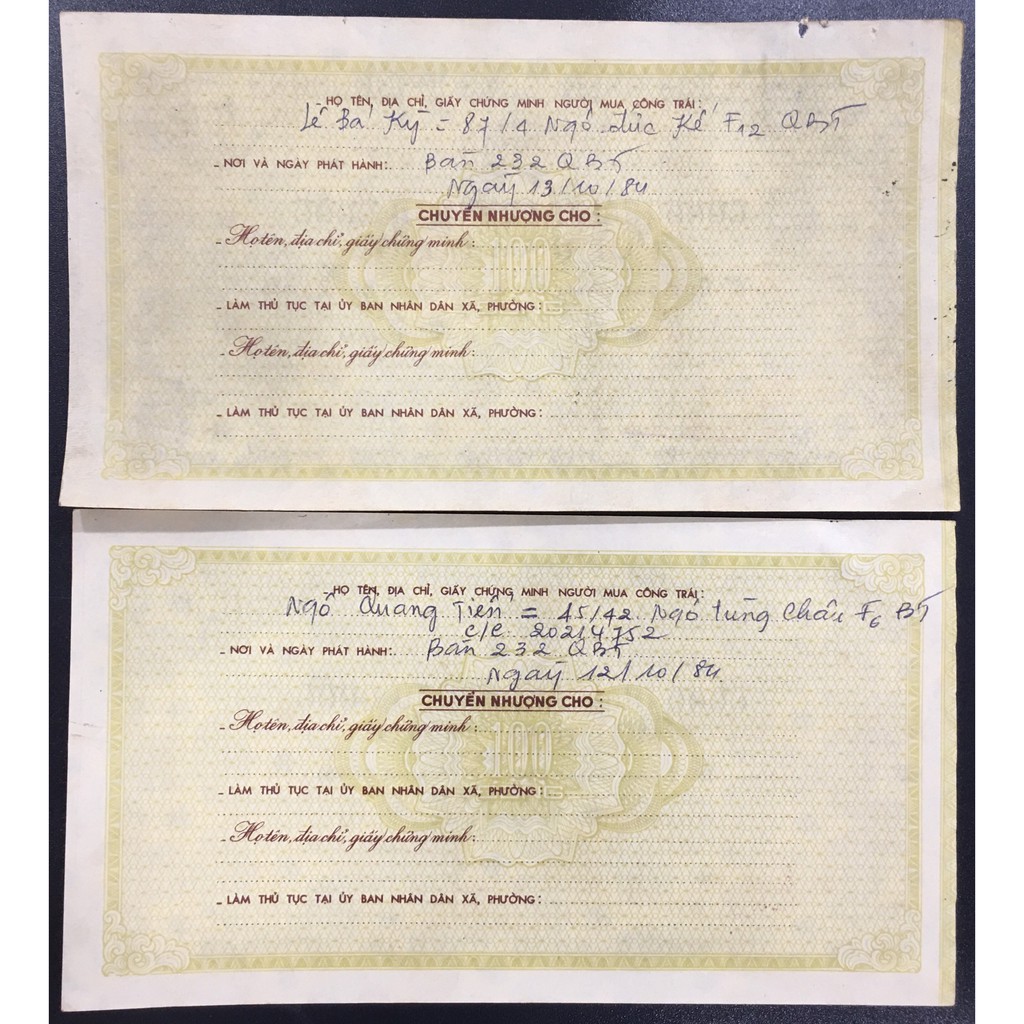 HỌ TÊN, ĐỊA CHỈ, GIẤY CHỨNG MINH NGƯỜI MUA CÔNG TRÁI:
Lê Bá Kỳ = 87/4 Ngô Đức Kế F12 QBT
- NƠI VÀ NGÀY PHÁT HÀNH: Bàn 232 QBT
Ngày 13/10/84
CHUYỂN NHƯỢNG CHO:
- Họ tên, địa chỉ, giấy chứng minh:
- LÀM THỦ TỤC TẠI ỦY BAN NHÂN DÂN XÃ, PHƯỜNG:
- Họ tên, địa chỉ, giấy chứng minh:
- LÀM THỦ TỤC TẠI ỦY BAN NHÂN DÂN XÃ, PHƯỜNG:
100
HỌ TÊN, ĐỊA CHỈ, GIẤY CHỨNG MINH NGƯỜI MUA CÔNG TRÁI:
Ngô Quang Tiến = 45/42 Ngô Tùng Châu F6 BT
C/C 20214752
- NƠI VÀ NGÀY PHÁT HÀNH: Bàn 232 QBT
Ngày 12/10/84
CHUYỂN NHƯỢNG CHO:
- Họ tên, địa chỉ, giấy chứng minh:
- LÀM THỦ TỤC TẠI ỦY BAN NHÂN DÂN XÃ, PHƯỜNG:
- Họ tên, địa chỉ, giấy chứng minh:
- LÀM THỦ TỤC TẠI ỦY BAN NHÂN DÂN XÃ, PHƯỜNG:
100